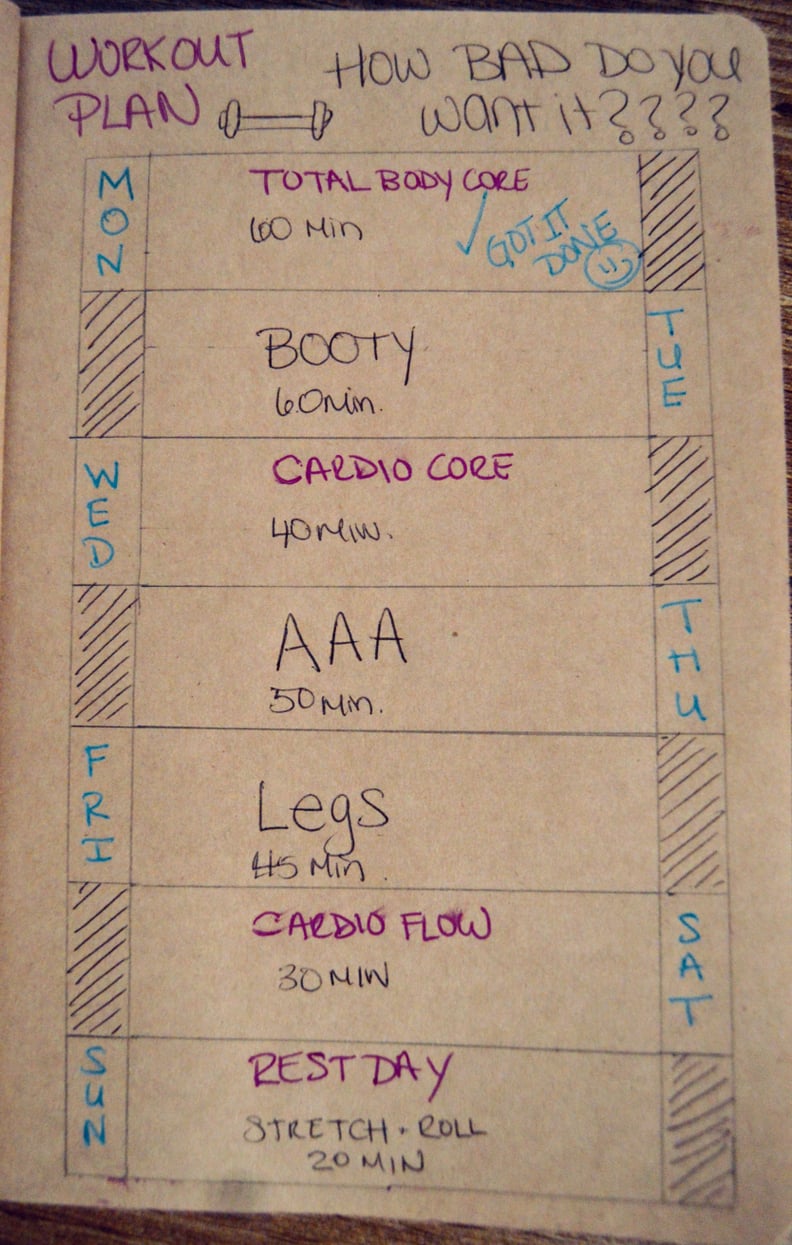 WORKOUT
PLAN
HOW BAD DO YOU
want it????
MON
TOTAL BODY CORE
60 Min
✓ GOT IT
DONE
TUE
BOOTY
60 Min.
WED
CARDIO CORE
40 MIN.
THU
AAA
50 Min.
FRI
Legs
45 Min.
SAT
CARDIO FLOW
30 MIN
SUN
REST DAY
STRETCH + ROLL
20 MIN